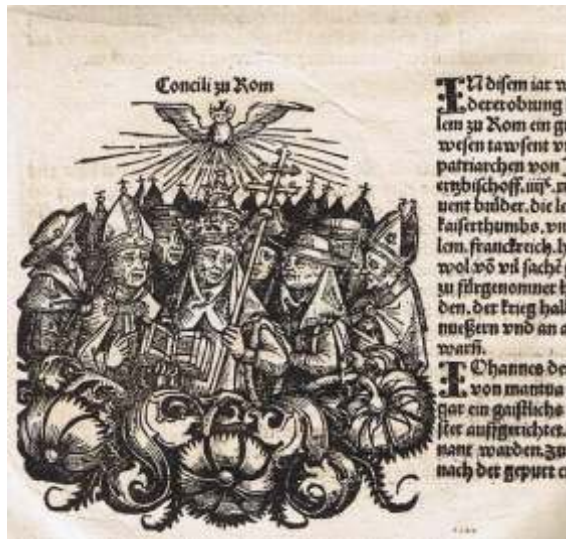 Concili zu Rom
IN disem iar w
dererobrung
lem zu Rom ein g
wesen tawsent v
patriarchen von
ertzbischoff.
uent brüder.die le
kaiserthumbs.vn
lem.franckreich.h
wol võ vil sachẽ
zu fürgenomner
den.der krieg hall
vnd an a
warñ.
IOhannes de
von mantua
gar ein gaistlichs
ster auffgerichtet.
nant warden.zu
nach der gepurt c